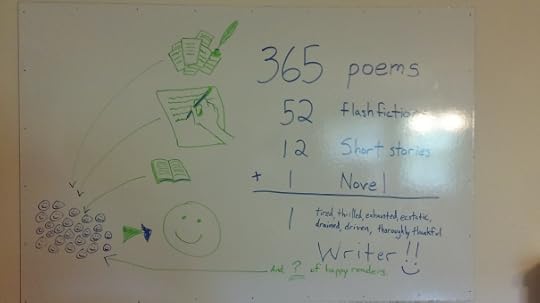 365 poems
52 flash fiction
12 Short stories
+ 1 Novel
1 tired, thrilled, exhausted, ecstatic,
drained, driven, thoroughly thankful
Writer!!
And ? of happy readers.